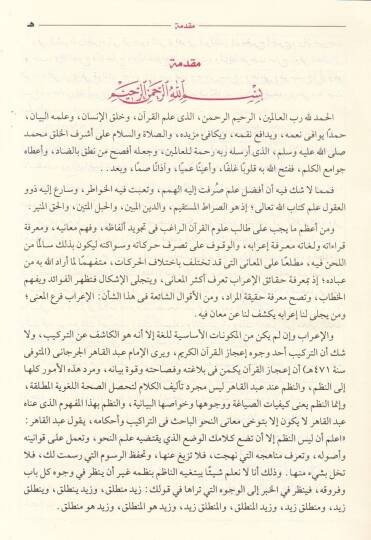 مقدمة
هـ
مقدمة
بسم الله الرحمن الرحيم
الحمد لله رب العالمين، الرحيم الرحمن، الذى علم القرآن، وخلق الإنسان، وعلمه البيان،
حمدًا يوافى نعمه، ويدافع نقمه، ويكافئ مزيده، والصلاة والسلام على أشرف الخلق محمد
صلى الله عليه وسلم، الذى أرسله ربه رحمة للعالمين، وجعله أفصح من نطق بالضاد، وأعطاه
جوامع الكلم، ففتح الله به قلوبًا غلفًا، وأعينًا عميًا، وآذانًا صمًا، وبعد..
فمما لا شك فيه أن أفضل علم صُرفت إليه الهمم، وتعبت فيه الخواطر، وسارع إليه ذوو
العقول علم كتاب الله تعالى؛ إذ هو الصراط المستقيم، والدين المبين، والحبل المتين، والحق المنير.
ومن أعظم ما يجب على طالب علوم القرآن الراغب فى تجويد ألفاظه، وفهم معانيه، ومعرفة
قراءاته ولغاته معرفة إعرابه، والوقوف على تصرف حركاته وسواكنه ليكون بذلك سالمًا من
اللحن فيه، مطلعًا على المعانى التى قد تختلف باختلاف الحركات، متفهمًا لما أراد الله به من
عباده؛ إذ بمعرفة حقائق الإعراب تعرف أكثر المعانى، وينجلى الإشكال فتظهر الفوائد ويفهم
الخطاب، وتصح معرفة حقيقة المراد، ومن الأقوال الشائعة فى هذا الشأن: الإعراب فرع المعنى؛
ومن يجلى لنا إعرابه يكشف لنا عن معان فيه.
والإعراب وإن لم يكن من المكونات الأساسية للغة إلا أنه هو الكاشف عن التركيب، ولا
شك أن التركيب أحد وجوه إعجاز القرآن الكريم، ويرى الإمام عبد القاهر الجرجانى (المتوفى
سنة ٤٧١هـ) أن إعجاز القرآن يكمن فى بلاغته وفصاحته وقوة بيانه، ومرد هذه الأمور كلها
إلى النظم، والنظم عند عبد القاهر ليس مجرد تأليف الكلام لتحصل الصحة اللغوية المطلقة،
وإنما النظم يعنى كيفيات الصياغة ووجوهها وخواصها البيانية، والنظم بهذا المفهوم الذى عناه
عبد القاهر لا يكون إلا بتوخى معانى النحو الباحث فى التراكيب وأحكامه، يقول عبد القاهر:
«اعلم أن ليس النظم إلا أن تضع كلامك الوضع الذى يقتضيه علم النحو، وتعمل على قوانينه
وأصوله، وتعرف مناهجه التى نهجت، فلا تزيغ عنها، وتحفظ الرسوم التى رسمت لك، فلا
تخل بشىء منها. وذلك أنا لا نعلم شيئًا يبتغيه الناظم بنظمه غير أن ينظر في وجوه كل باب
وفروقه، فينظر في الخبر إلى الوجوه التي تراها في قولك: زيد منطلق، وزيد ينطلق، وينطلق
زيد، ومنطلق زيد، وزيد المنطلق، والمنطلق زيد، وزيد هو المنطلق، وزيد هو منطلق.